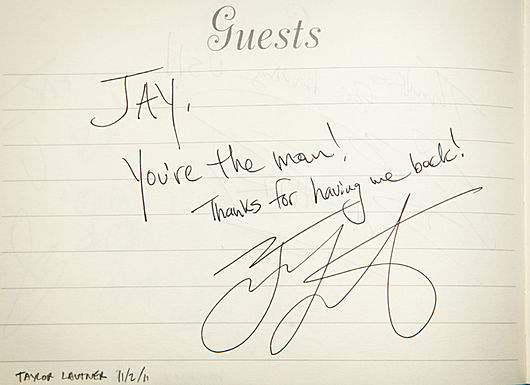 Guests
JAY,
You're the man!
Thanks for having me back!
TAYLOR LAUTNER 11/2/11